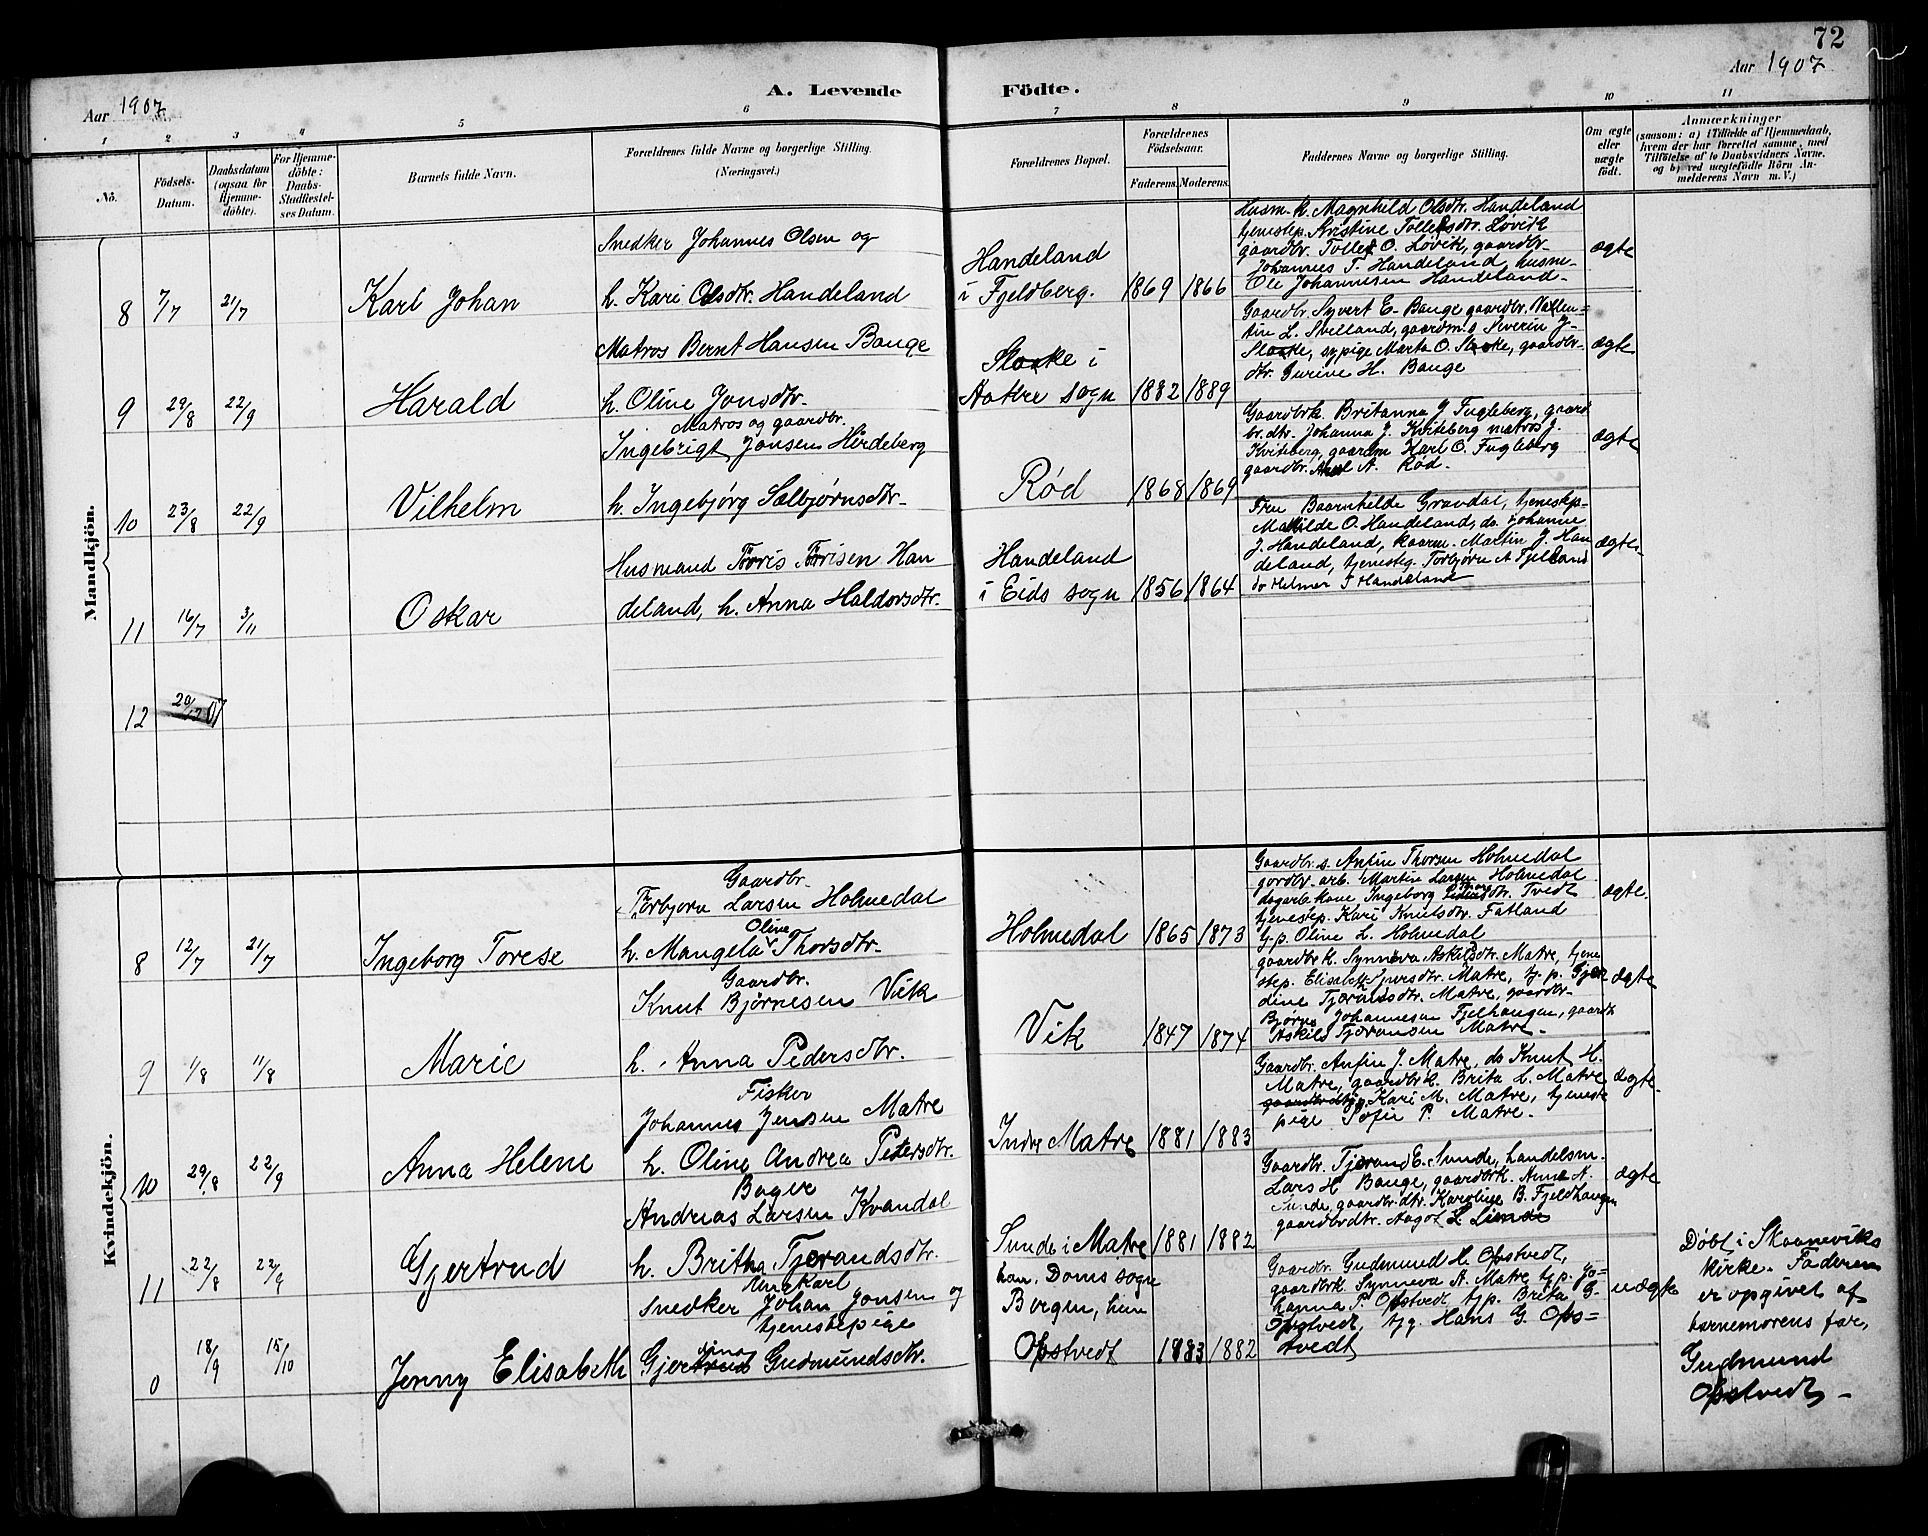 72
Aar 1907
A. Levende Födte.
Aar 1907
1 2 3 4 5 6 7 8 9 10 11
No.
Födsels-
Datum.
Daabsdatum
(ogsaa for
Hjemme-
döbte).
For Hjemme-
döbte:
Daabs-
Stadfæstel-
ses Datum.
Barnets fulde Navn.
Forældrenes fulde Navne og borgerlige Stilling.
(Næringsvei.)
Forældrenes Bopæl.
Forældrenes
Födselsaar.
Faderens. Moderens.
Faddernes Navne og borgerlige Stilling.
Om ægte
eller
uægte
födt.
Anmærkninger
(saasom: a) i Tilfælde af Hjemmedaab,
hvem der har forrettet samme, med
Tilföielse af to Daabsvidners Navne,
og b) ved uægtefödte Börn An-
melderens Navn m. V.)
Mandkjön.
8 7/7 21/7 Karl Johan
Snedker Johannes Olsen og
h. Kari Olsdtr. Handeland
Handeland
i Fjeldberg. 1869 1866
Husm. k. Magnhild Olsdtr. Handeland
tjenestep. Kristine Tollefsdtr. Løvik
gaardbr. Tollef O. Løvik, gaardbr.
Johannes T. Handeland, husm.
Ole Johannesen Handeland.
ægte
9 29/8 22/9 Harald
Matros Bernt Hansen Bauge
h. Oline Jonsdtr.
Sloske i
Aakre sogn 1882 1889
Gaardbr. Syvert E. Bauge gaardbr. Valen=
tin L. Svelland, gaardm.s. Severin J.
Sloske, sypige Marta O. Sloske, gaardbr.
dtr. Gurine H. Bauge
ægte
10 23/8 22/9 Vilhelm
Matros og gaardbr.
Ingebrigt Jonsen Hirdeberg
h. Ingebjörg Salbjørnsdtr.
Rød 1868 1869
Gaardbrk. Britanna J Fugleberg, gaard
br. dtr. Johanna J. Kviteberg matros J.
Kviteberg, gaardm Karl O. Fugleberg
gaardbr. Axel A. Rød.
ægte
11 16/7 3/11 Oskar
Husmand Tørris Tørrisen Han
deland, h. Anna Haldorsdtr.
Handeland
i Eids sogn 1856 1864
Fru Baarnhilde Gravdal, tjenestep.
Mathilde O. Handeland, do. Johanne
J. Handeland, kaarm. Martin J. Han
deland, tjenesteg. Torbjørn A Fjelland
do Helmer T Handeland
ægte.
12 20/12 07
Kvindekjön.
8 12/7 21/7 Ingeborg Torese
Gaardbr.
Torbjørn Larsen Holmedal
Oline
h. Mangela Thorsdtr.
Holmedal 1865 1873
Gaardbr. s. Anfin Thorsen Holmedal
gordbr. arb. Martin Larsen Holmedal
dagarb. kone Ingeborg Thorsdtr. Tvedt
tjenestep. Kari Knutsdtr. Fatland
tj.p. Oline L. Holmedal
ægte.
9 1/8 11/8 Marie
Gaardbr.
Knut Bjørnesen Vik
h. Anna Pedersdtr.
Vik 1847 1874
gaardbr k. Synneva Askilsdtr. Matre, tjene
step. Elisabeth Sjursdtr. Matre, tj. p. Gjer
dine Tjerandsdtr. Matre, gaardbr.
Bjørne Johannesen Fjelhaugen, gaardbr
Askild Tjeransen Matre.
ægte
10 29/8 22/9 Anna Helene
Fisker
Johannes Jensen Matre
h. Oline Andrea Petersdtr.
Indre Matre 1881 1883
Gaardbr. Anfin J. Matre, do Knut H.
Matre, gaardbr k. Brita L. Matre
Kari M. Matre, tjeneste
pige Sofie P. Matre.
ægte.
11 22/8 22/9 Gjertrud
Bager
Andreas Larsen Kvandal
h. Britha Tjerandsdtr.
Sunde i Matre 1881 1882
Gaardbr. Tjerand E. Sunde, handelsm.
Lars H Bauge, gaardbrk. Anna A.
Sunde, gaardbr. dtr. Karoline B. Fjeldhaugen
gaardbrdtr. Aagot L Sunde
ægte
0 18/9 15/10 Jenny Elisabeth
Ungkarl
Snedker Johan Jonsen og
tjenestepige
Gjertrud Gudmundsdtr.
han. Doms sogn
Bergen, hun
Opstvedt 1883 1882
Gaardbr. Gudmund H. Opstvedt,
gaardbrk. Synneva A. Matre tj. p. Jo=
hanna P. Opstvedt, tj. p. Brita G.
Opstvedt, tj. g. Hans G. Ops=
tvedt
uægte
Døbt i Skaaneviks
kirke. Faderen
er opgivet af
barnemorens far,
Gudmund
Opstvedt -